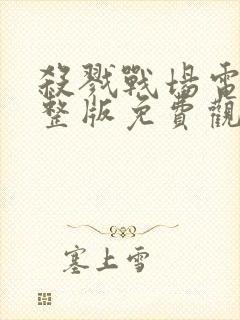 殺戮戰場電
整版免費觀
塞上雪